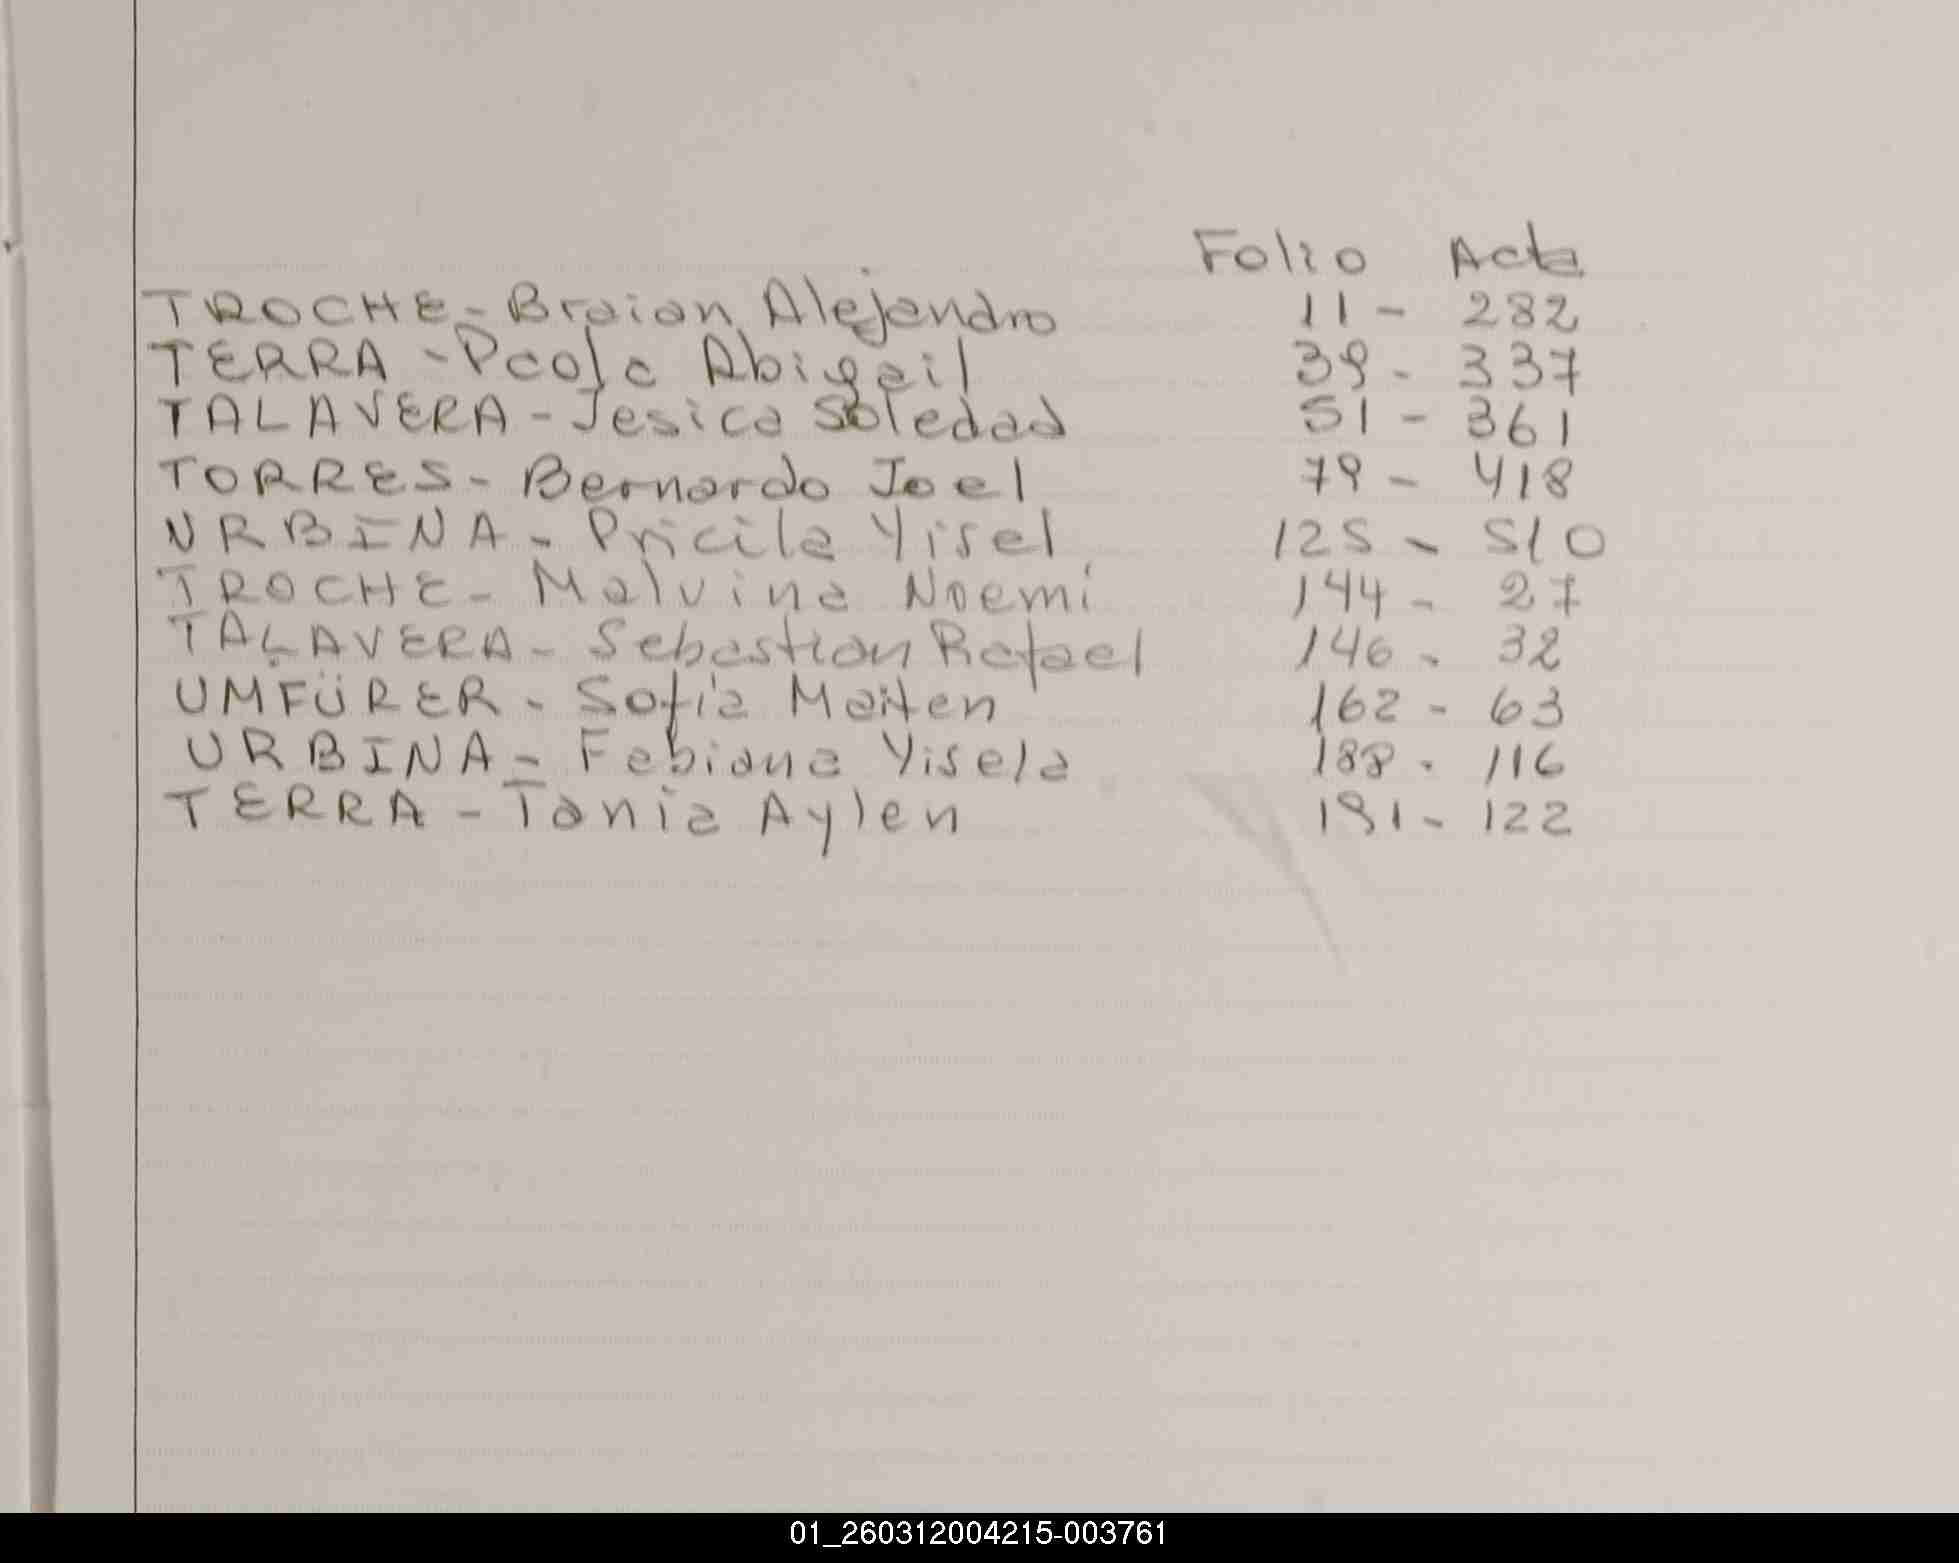 Folio Acta
TROCHE - Braian Alejandro 11 - 282
TERRA - Paola Abigail 39 - 337
TALAVERA - Jesica Soledad 51 - 361
TORRES - Bernardo Joel 79 - 418
URBINA - Pricila Yisel 125 - 510
TROCHE - Malvina Noemí 144 - 27
TALAVERA - Sebastian Rafael 146 - 32
UMFÜRER - Sofía Maiten 162 - 63
URBINA - Fabiana Yisela 188 - 116
TERRA - Tania Aylen 191 - 122
01_260312004215-003761